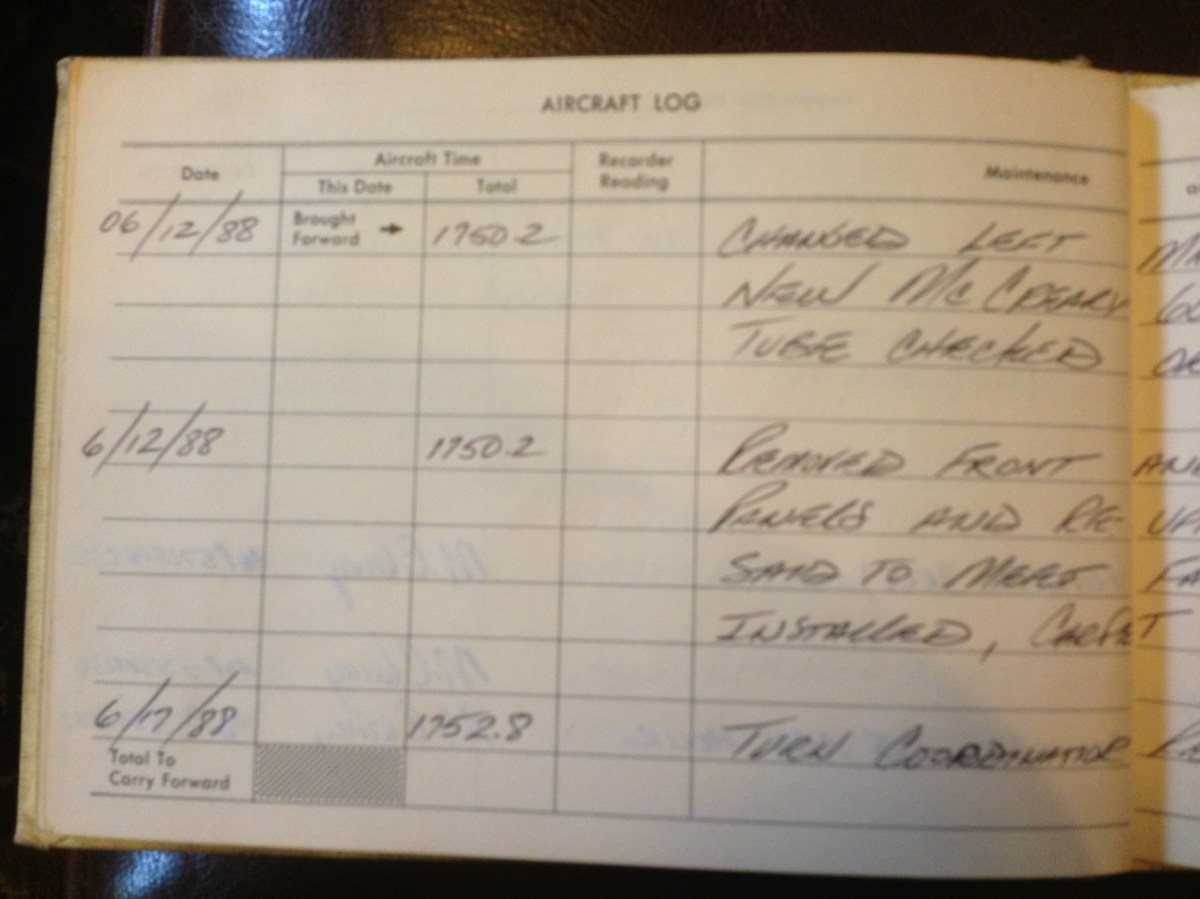 AIRCRAFT LOG
Date Aircraft Time Recorder Reading Maintenance
This Date Total
06/12/88 Brought Forward → 1750.2 CHANGED LEFT
NEW MCCREARY
TUBE CHECKED
6/12/88 1750.2 REMOVED FRONT AND
PANELS AND RE-
SAID TO MEET FA
INSTALLED, CARPET
6/17/88 1752.8 TURN COORDINATOR
Total To
Carry Forward